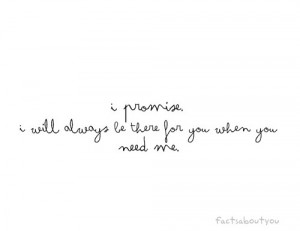 i promise.
i will always be there for you when you
need me.
factsaboutyou